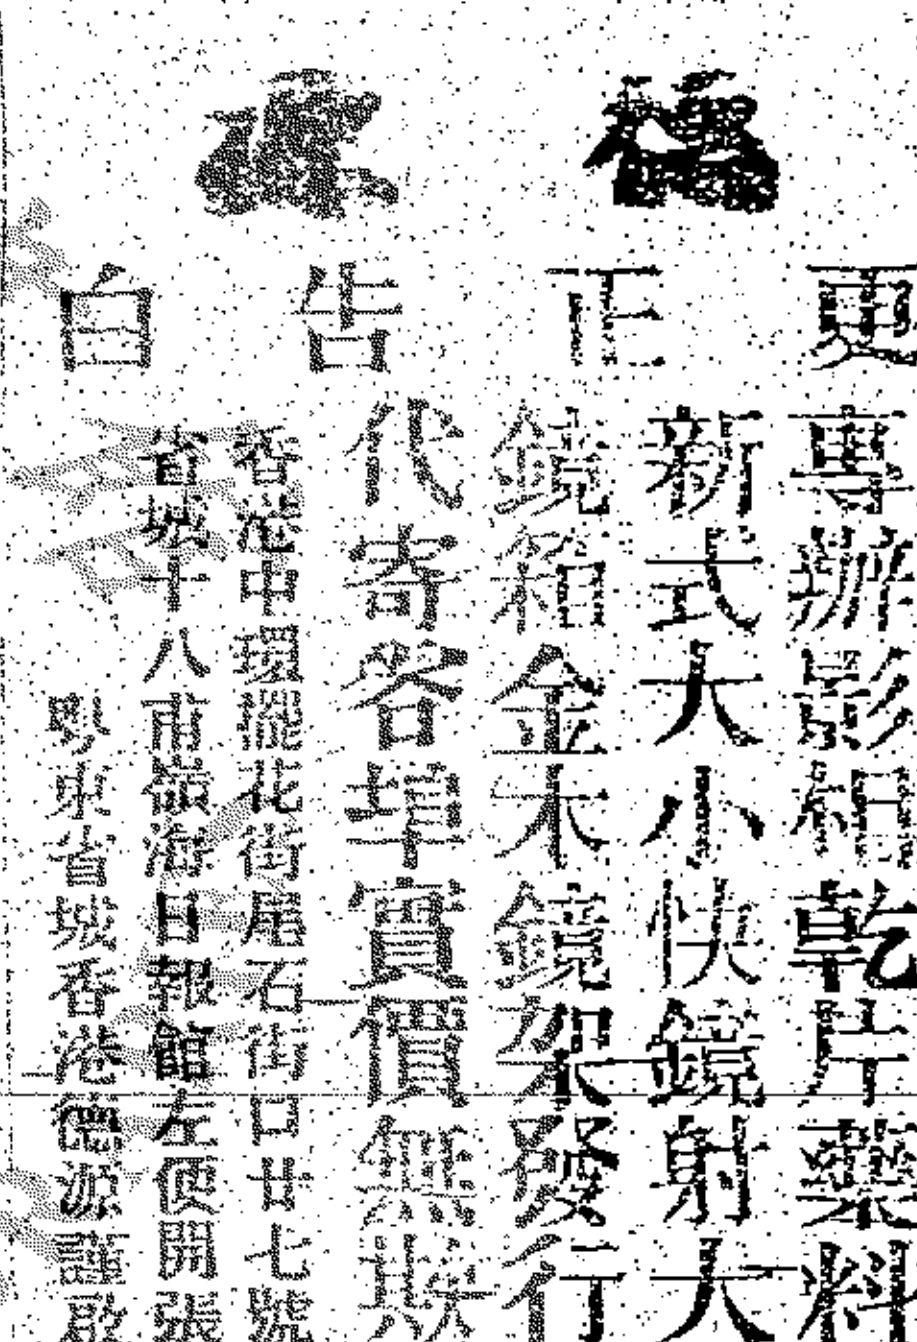 更正告白
專辦影相乾片藥
新式大小快鏡射大
鏡箱金木鏡架發行
代寄客埠實價無欺
香港中環擺花街尾石街口廿七號
省城十八甫嶺海日報館左便開張
城香港德源